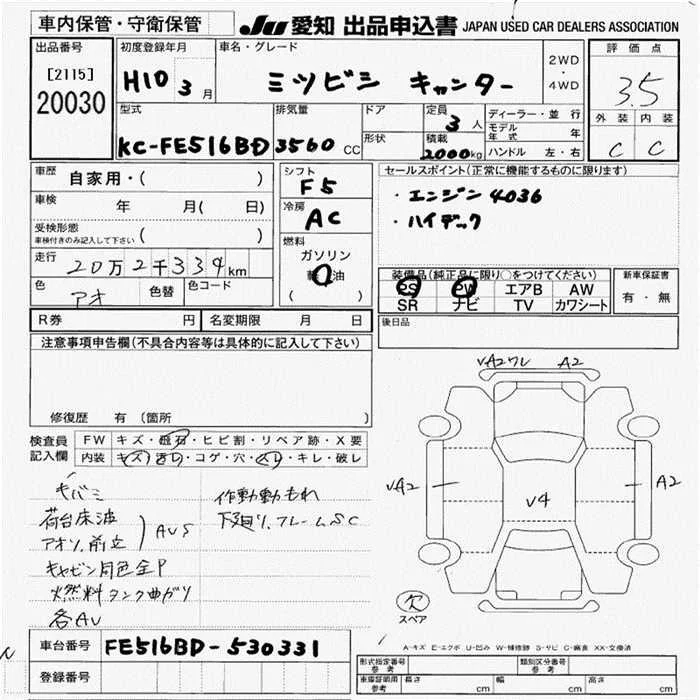 車内保管・守衛保管
JU 愛知 出品申込書 JAPAN USED CAR DEALERS ASSOCIATION
出品番号
[2115]
20030
初度登録年月
H10 3月
車名・グレード
ミツビシ キャンター
2WD
・
4WD
評価点
3.5
外装 内装
C C
型式
KC-FE516BD
排気量
3560 CC
ドア
形状
定員
3人
積載
2000kg
ディーラー・並行
モデル年式 年
ハンドル 左・右
車歴 自家用・( )
車検 年 月( 日)
受検形態
車検付きのみ記入して下さい ( )
走行 20万2千339km
色 アオ 色替 色コード
シフト
F5
冷房
AC
燃料
ガソリン
軽油
( )
セールスポイント(正常に機能するものに限ります)
・エンジン4D36
・ハイデック
装備品(純正品に限り○をつけてください)
PS PW エアB AW
SR ナビ TV カワシート
新車保証書
有・無
R券 円 名変期限 月 日
後日品
注意事項申告欄(不具合内容等は具体的に記入して下さい)
修復歴 有(箇所 )
検査員
記入欄
FW キズ・飛石・ヒビ割・リペア跡・X要
内装 キズ・汚レ・コゲ・穴・スレ・キレ・破レ
荷台床波
アオリ、前立 AUS
キャビン同色全P
燃料タンク曲ガリ
各AU
作動動もれ
下廻り、フレームSC
A2
VA2
V4
A2
欠
スペア
A-キズ E-エクボ U-凹み W-補修跡 S-サビ C-腐食 XX-交換済
車台番号 FE516BD-530331
登録番号
形式指定番号
参考
類別区分番号
参考
車庫証明用
参考
長さ cm 幅 cm 高さ cm